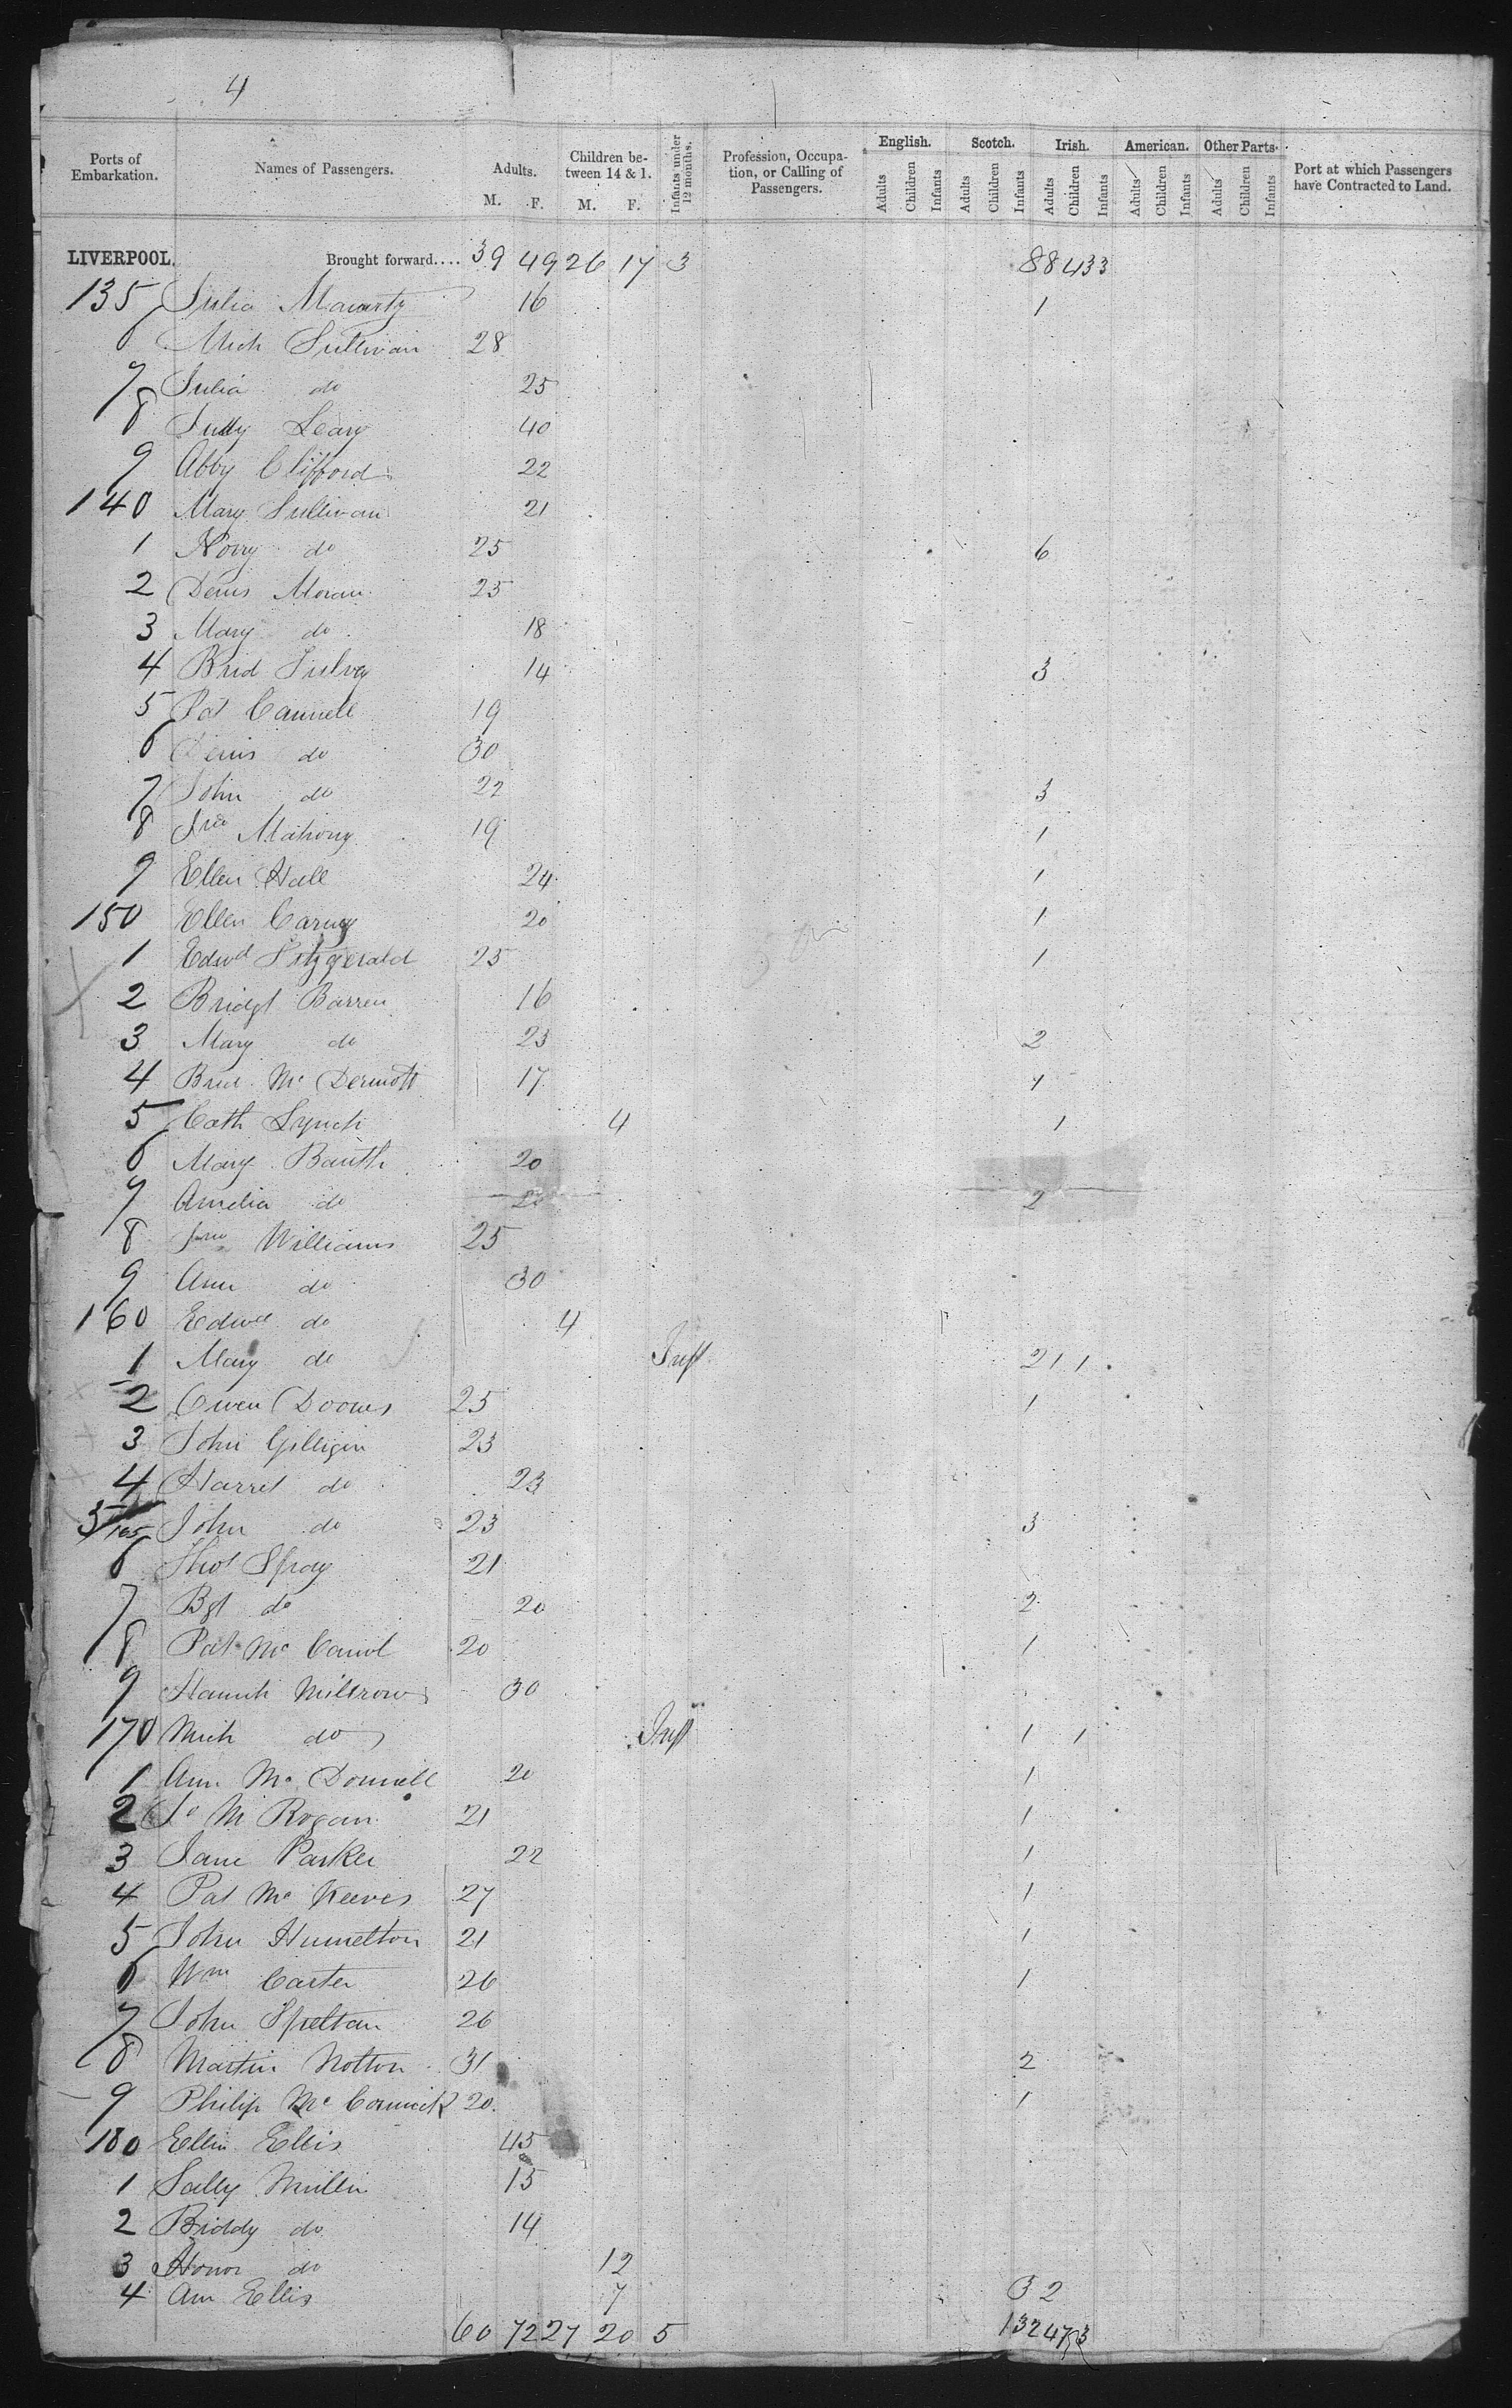 4
Ports of Embarkation. Names of Passengers. Adults. M. F. Children between 14 & 1. M. F. Infants under 12 months. Profession, Occupation, or Calling of Passengers. English. Adults Children Infants Scotch. Adults Children Infants Irish. Adults Children Infants American. Adults Children Infants Other Parts. Adults Children Infants Port at which Passengers have Contracted to Land.
LIVERPOOL. Brought forward.... 39 49 26 17 3 88 43 3
135 Julia 16 1
6 Mich Sullivan 28
7 Julia do 25
8 Judy Leary 40
9 Abby Clifford 22
140 Mary Sullivan 21
1 do 25 6
2 Denis Moran 25
3 Mary do 18
4 Brid 14 3
5 Pat Connell 19
6 Denis do 30
7 John do 22 3
8 Mahony 19 1
9 Ellen Hall 24 1
150 Ellen Carney 20 1
1 Edwd Fitzgerald 25 1
2 Bridgt Barren 16
3 Mary do 23 2
4 Brid Mc Dermott 17 1
5 Cath Lynch 4 1
6 Mary 20
7 Amelia do 2
8 Williams 25
9 Ann do 30
160 Edwd do 4
1 Mary do Inft 2 1 1
2 Owen 25 1
3 John Gilligin 23
4 Harret do 23
5/165 John do 23 3
6 Thos Spray 21
7 Bgt do 20 2
8 Pat Mc 20 1
9 30
170 Mich do Inft 1 1
1 Ann Mc Donnell 20 1
2 Rogan 21 1
3 Jane Parker 22 1
4 Pat Mc Keeves 27 1
5 John 21 1
6 Wm Carter 26 1
7 John 26
8 Martin Notton 31 2
9 Philip Mc Cormick 20 1
180 Ellin Ellis 45
1 Sally Mullin 15
2 Biddy do 14
3 Honor do 12
4 Ann Ellis 7 3 2
60 72 27 20 5 132 47